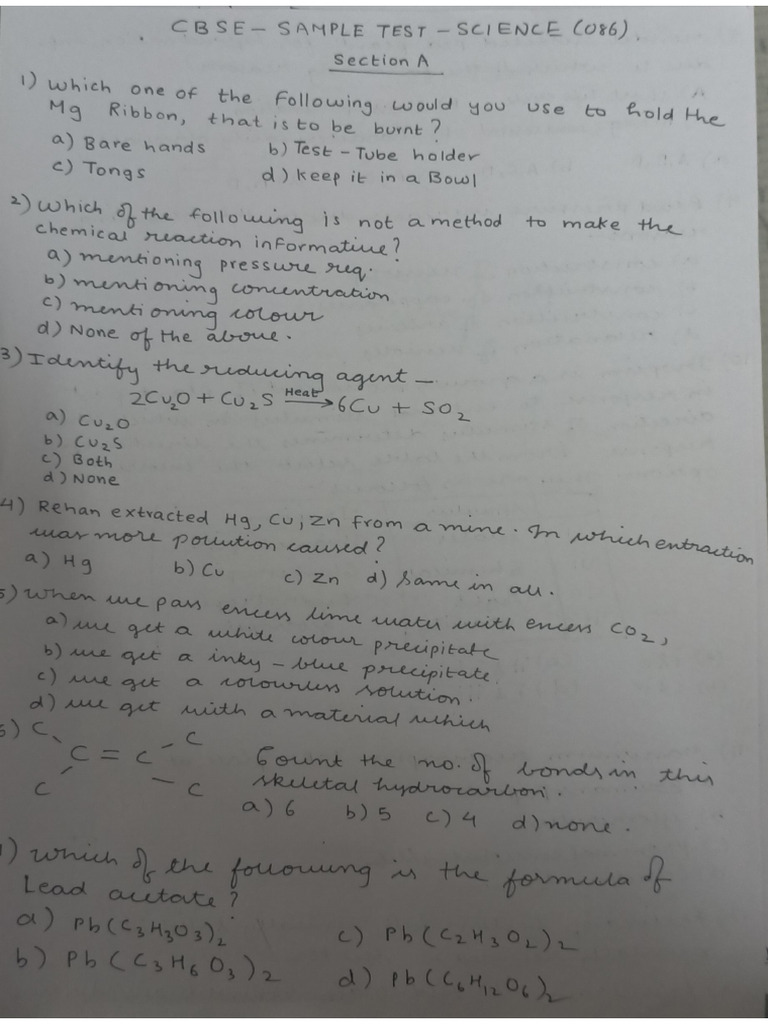 CBSE - SAMPLE TEST - SCIENCE (086).
Section A
1) Which one of the following would you use to hold the
Mg Ribbon, that is to be burnt?
a) Bare hands b) Test-Tube holder
c) Tongs d) keep it in a Bowl
2) Which of the following is not a method to make the
chemical reaction informative?
a) mentioning pressure req.
b) mentioning concentration
c) mentioning colour
d) None of the above.
3) Identify the reducing agent -
2Cu₂O + Cu₂S Heat→ 6Cu + SO₂
a) Cu₂O
b) Cu₂S
c) Both
d) None
4) Rehan extracted Hg, Cu, Zn from a mine. In which extraction
was more pollution caused?
a) Hg b) Cu c) Zn d) Same in all.
5) When we pass excess lime water with excess CO₂,
a) we get a white colour precipitate
b) we get a inky-blue precipitate
c) we get a colourless solution.
d) we get with a material which
6) C C
C = C Count the no. of bonds in this
C C skeletal hydrocarbon.
a) 6 b) 5 c) 4 d) none.
) Which of the following is the formula of
Lead acetate?
a) Pb(C₃H₃O₃)₂ c) Pb(C₂H₃O₂)₂
b) Pb(C₃H₆O₃)₂ d) Pb(C₆H₁₂O₆)₂